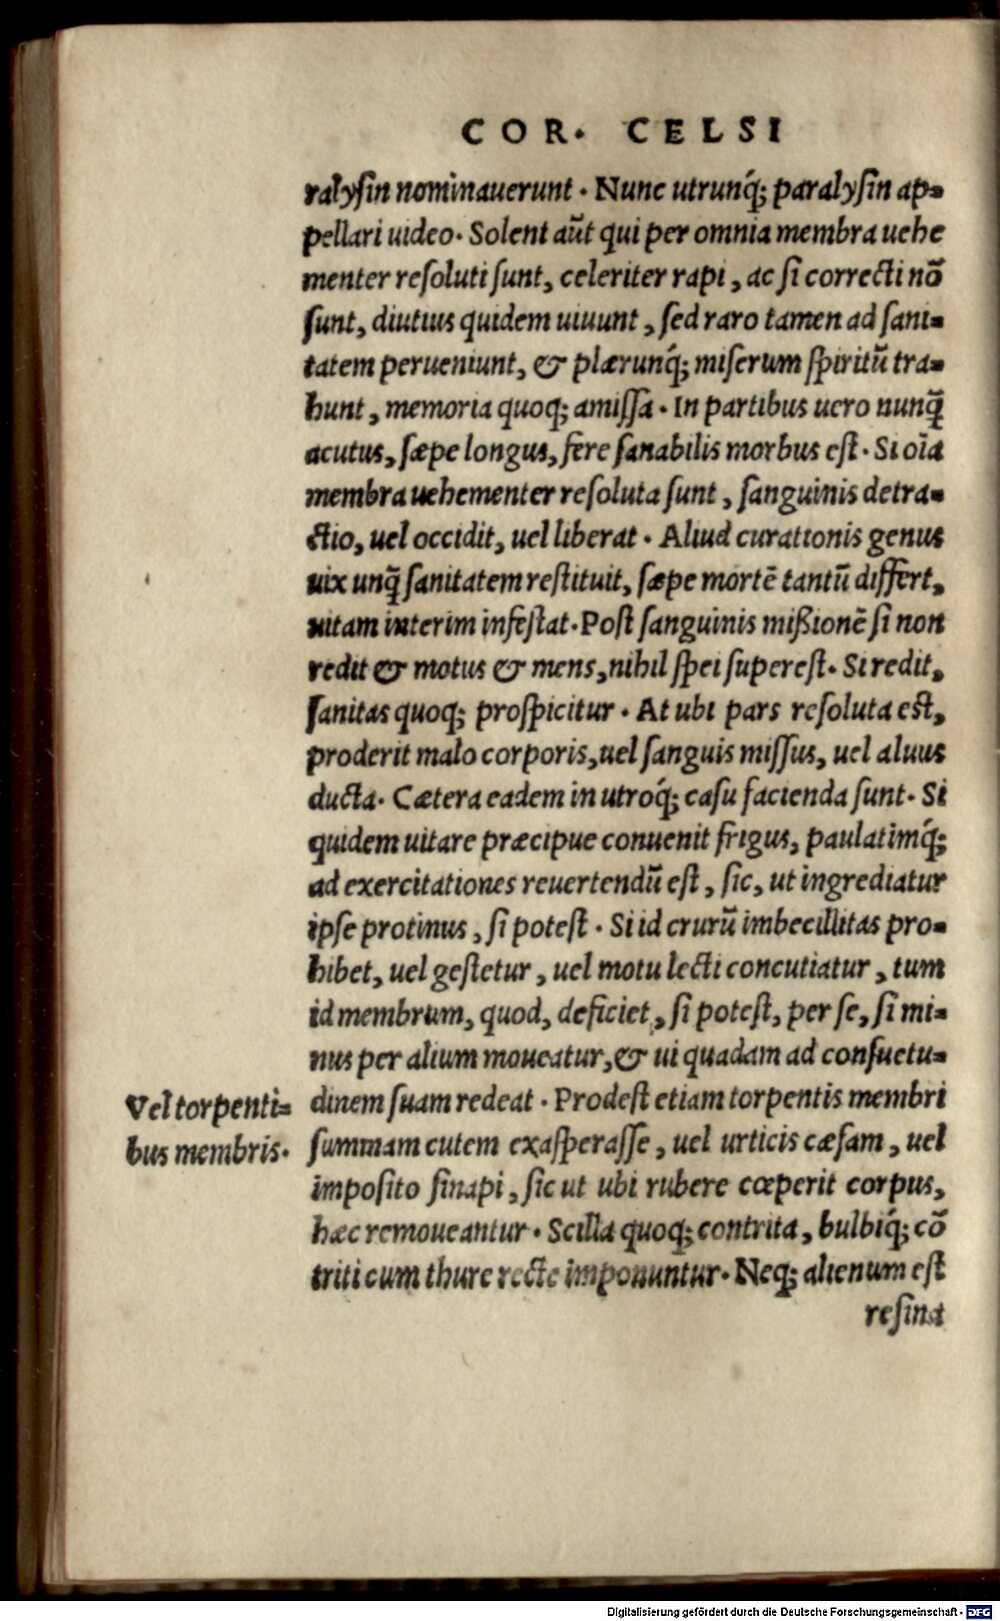 COR. CELSI
ralysin nominauerunt. Nunc utrunq́; paralysin ap-
pellari uideo. Solent aũt qui per omnia membra uehe
menter resoluti sunt, celeriter rapi, ac si correcti nõ
sunt, diutius quidem uiuunt, sed raro tamen ad sani-
tatem perueniunt, & plærunq́; miserum spiritũ tra-
hunt, memoria quoq; amissa. In partibus uero nunq̃
acutus, sæpe longus, fere sanabilis morbus est. Si oĩa
membra uehementer resoluta sunt, sanguinis detra-
ctio, uel occidit, uel liberat. Aliud curationis genus
uix unq̃ sanitatem restituit, sæpe mortẽ tantũ differt,
uitam interim infestat. Post sanguinis mißionẽ si non
redit & motus & mens, nihil spei superest. Si redit,
sanitas quoq; prospicitur. At ubi pars resoluta est,
proderit malo corporis, uel sanguis missus, uel aluus
ducta. Cætera eadem in utroq́; casu facienda sunt. Si
quidem uitare præcipue conuenit frigus, paulatimq́;
ad exercitationes reuertendũ est, sic, ut ingrediatur
ipse protinus, si potest. Si id crurũ imbecillitas pro-
hibet, uel gestetur, uel motu lecti concutiatur, tum
id membrum, quod, deficiet, si potest, per se, si mi-
nus per alium moueatur, & ui quadam ad consuetu-
dinem suam redeat. Prodest etiam torpentis membri
summam cutem exasperasse, uel urticis cæsam, uel
imposito sinapi, sic ut ubi rubere cœperit corpus,
hæc remoueantur. Scilla quoq; contrita, bulbiq́; cõ
triti cum thure recte imponuntur. Neq; alienum est
resina
Vel torpenti-
bus membris.
Digitalisierung gefördert durch die Deutsche Forschungsgemeinschaft - DFG